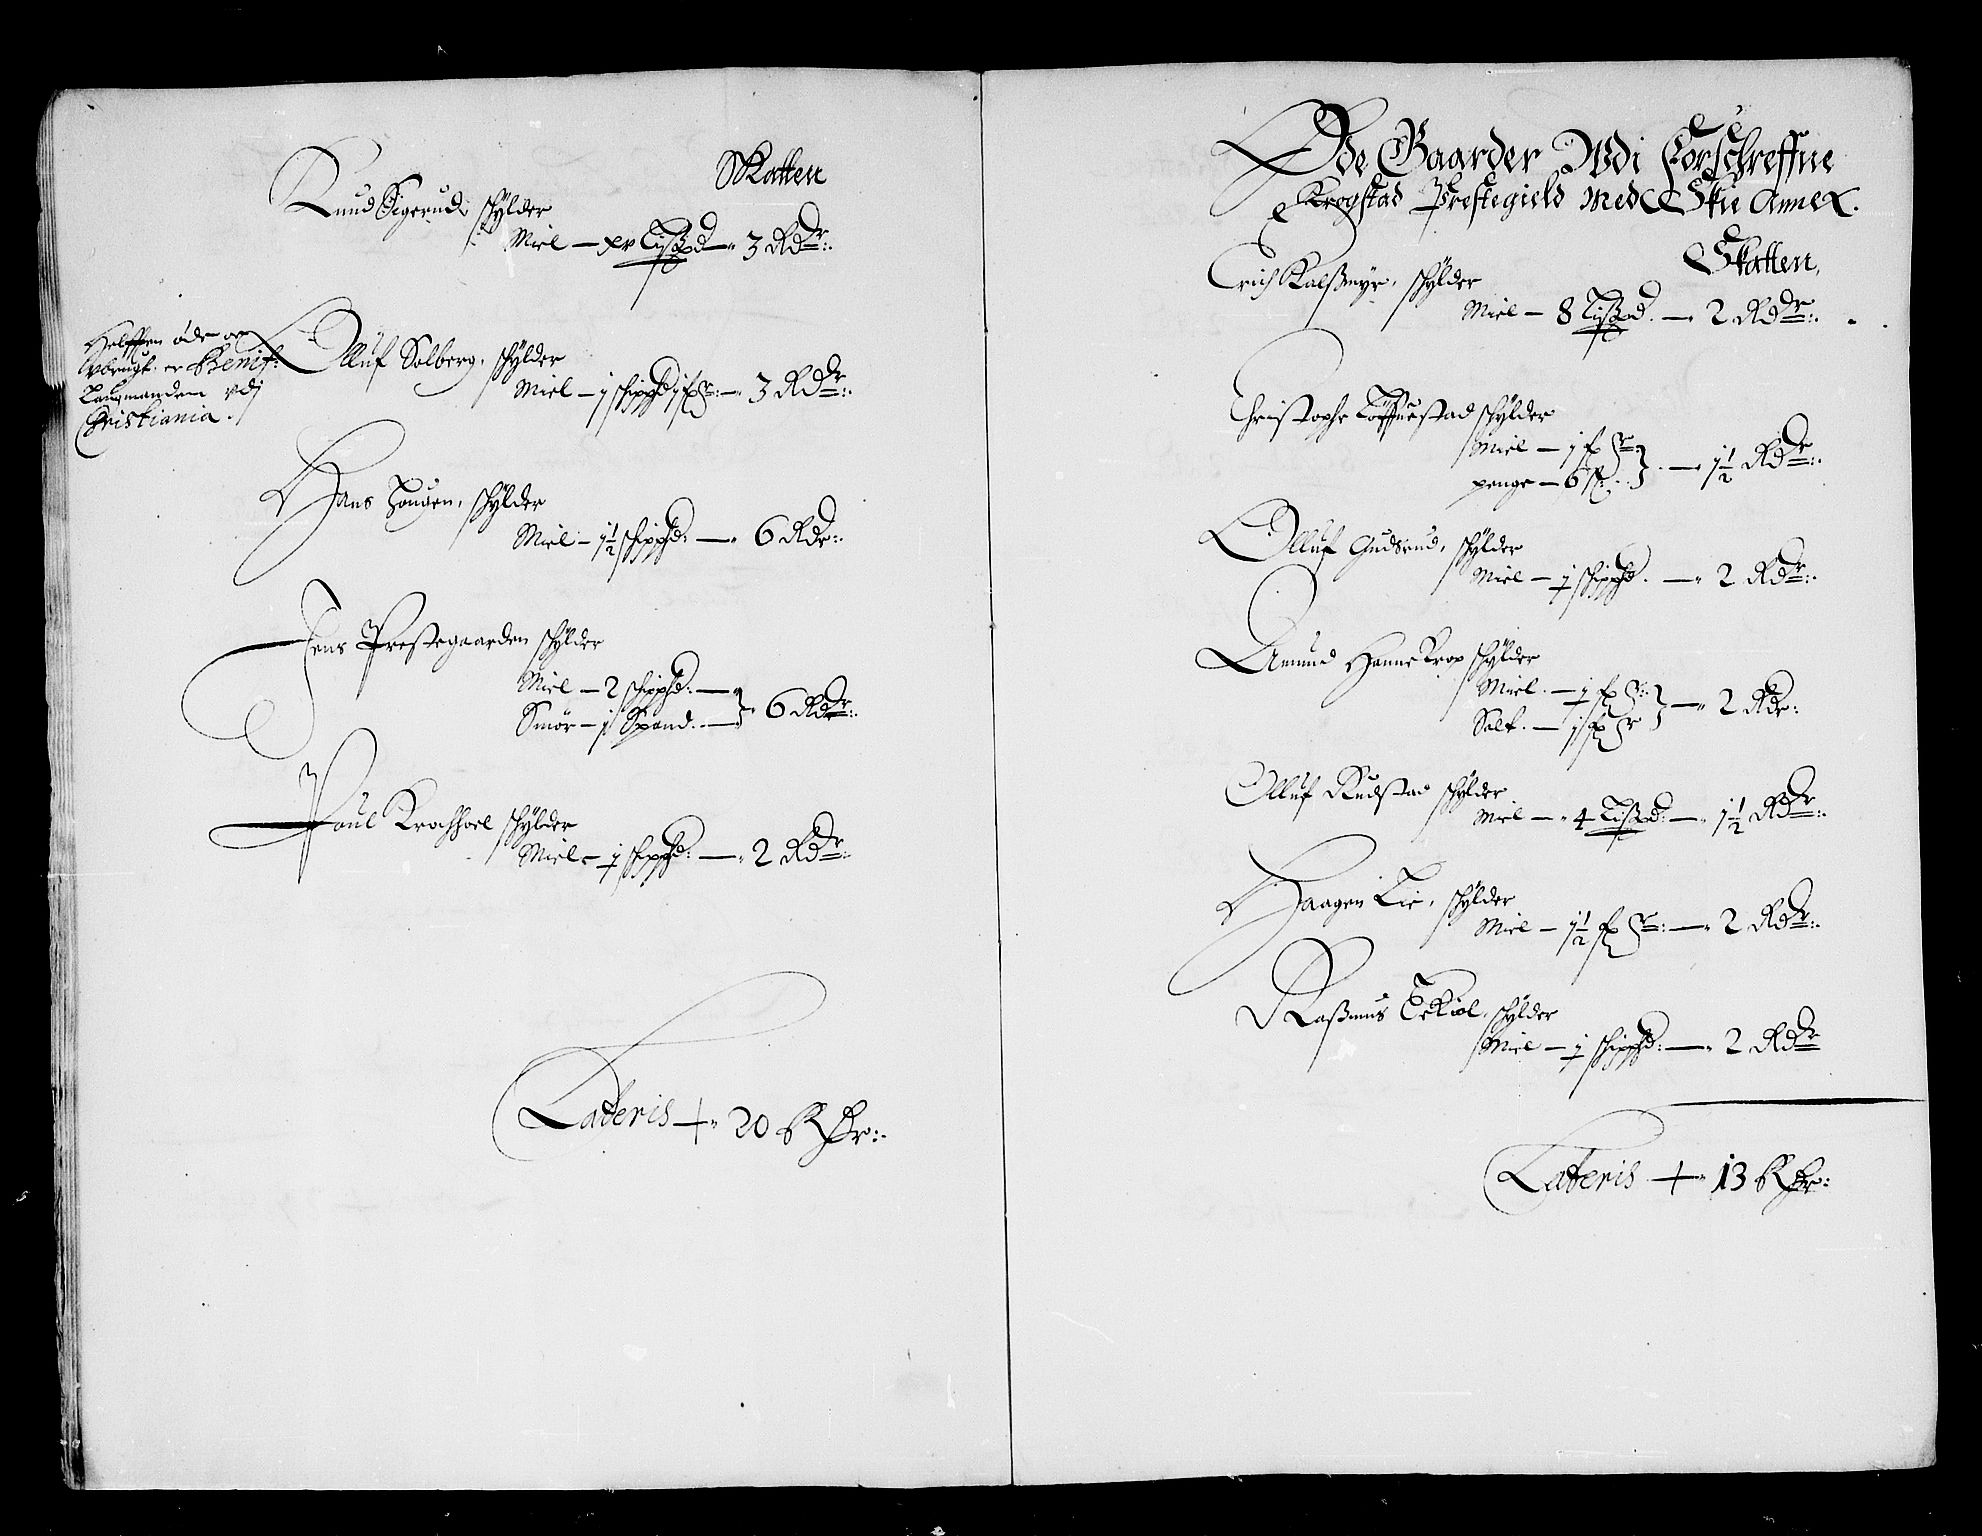 Skatten
Knud Sigerud, schÿlder
Miel — xv Lißpd — 3 Rdr:
Helfften øde och
vbrugt. er Benif:
Laugmanden vdj
Christiania.
Olluf Solberg, schÿlder
Miel — j schippd j fr: — 3 Rdr:
Hans Hougen, schÿlder
Miel — j½ schippd: — 6 Rdr:
Jens Prestegaarden schÿlder
Miel — 2 schippd: —
Smør — j Spand. — 6 Rdr:
Poul Krochhoel schÿlder
Miel — j schippd: — 2 Rdr:
Lateris — 20 Rdr:
Øde Gaarder Wdi Forschreffne
Krogstad Prestegield Med Skie Annex.
Skatten,
Erich Kalßmyr, schÿlder
Miel — 8 Lißpd. — 2 Rdr:
Christopher Løffuestad schÿlder
Miel — j fr
penge — 6 ß: — j½ Rdr:
Olluf Gudsrud, schÿlder
Miel — j schippd. — 2 Rdr:
Amund Hannekrop schÿlder
Miel. — j fr:
Salt. — j fr — 2 Rdr:
Olluf Rudstad schÿlder
Miel — 4 Lißpd: — j½ Rdr:
Haagen Lie, schÿlder
Miel — j½ fr: — 2 Rdr:
Raßmus Eekiol, schÿlder
Miel — j schippd: — 2 Rdr
Lateris — 13 Rdr: